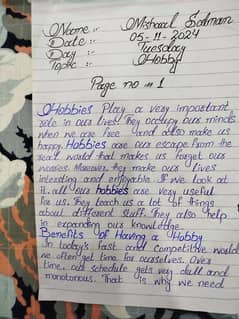 Name :- Misharal Salman
Date :- 05-11-2024
Day :- Tuesday
Topic :- Hobby
Page no # 1
Hobbies Play a very important
role in our lives. They occupy our minds
when we are free and also make us
happy. Hobbies are our escape from the
real world that makes us forget our
worries. Moreover, they make our lives
interesting and enjoyable. If we look at
it, all our hobbies are very useful
for us. They teach us a lot of things
about different stuff. They also help
in expanding our knowledge.
Benefits Of Having a Hobby
In today's fast and competitive world
we often get time for ourselves. Over
time, our schedule gets very dull and
monotonous. That is why we need